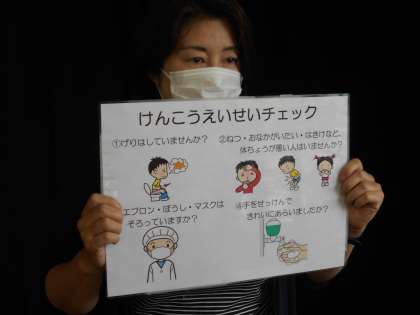 けんこうえいせいチェック
①げりはしていませんか？
②ねつ・おなかがいたい・はきけなど、
体ちょうが悪い人はいませんか？
エプロン・ぼうし・マスクは
そろっていますか？
④手をせっけんで
きれいにあらいましたか？